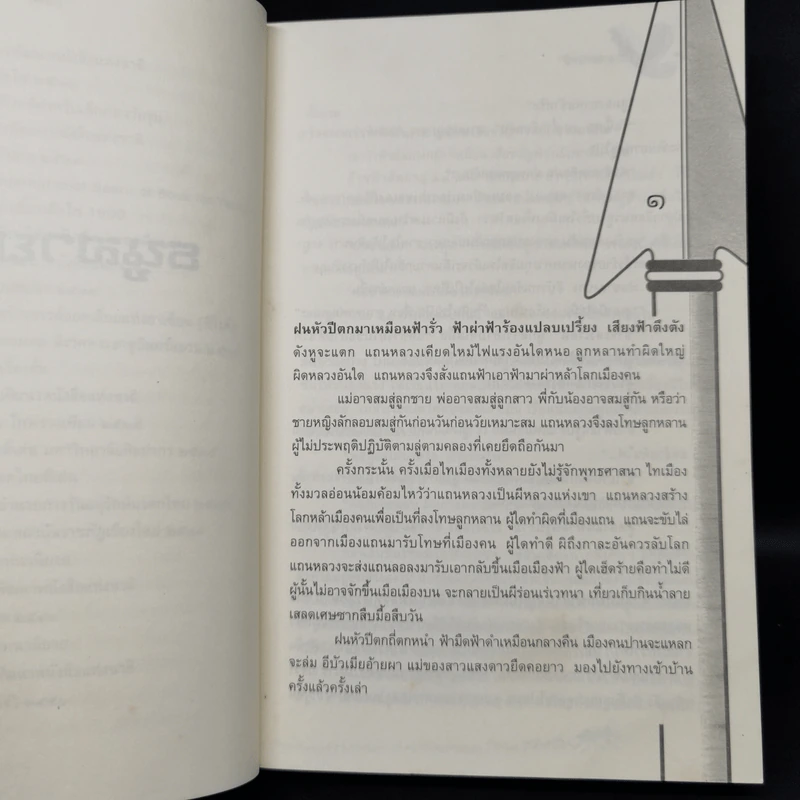 ๑
ฝนหัวปีตกมาเหมือนฟ้ารั่ว ฟ้าผ่าฟ้าร้องแปลบเปรี้ยง เสียงฟ้าดึงดัง
ดังหูจะแตก แถนหลวงเคียดไหม้ไฟแรงอันใดหนอ ลูกหลานทำผิดใหญ่
ผิดหลวงอันใด แถนหลวงจึงสั่งแถนฟ้าเอาฟ้ามาผ่าหล้าโลกเมืองคน
แม่อาจสมสู่ลูกชาย พ่ออาจสมสู่ลูกสาว พี่กับน้องอาจสมสู่กัน หรือว่า
ชายหญิงลักลอบสมสู่กันก่อนวันก่อนวัยเหมาะสม แถนหลวงจึงลงโทษลูกหลาน
ผู้ไม่ประพฤติปฏิบัติตามลู่ตามคลองที่เคยยึดถือกันมา
ครั้งกระนั้น ครั้งเมื่อไทเมืองทั้งหลายยังไม่รู้จักพุทธศาสนา ไทเมือง
ทั้งมวลอ่อนน้อมค้อมไหว้ว่าแถนหลวงเป็นผีหลวงแห่งเขา แถนหลวงสร้าง
โลกหล้าเมืองคนเพื่อเป็นที่ลงโทษลูกหลาน ผู้ใดทำผิดที่เมืองแถน แถนจะขับไล่
ออกจากเมืองแถนมารับโทษที่เมืองคน ผู้ใดทำดี ผิถึงกาละอันควรลับโลก
แถนหลวงจะส่งแถนลอลงมารับเอากลับขึ้นเมือเมืองฟ้า ผู้ใดเฮ็ดร้ายคือทำไม่ดี
ผู้นั้นไม่อาจจักขึ้นเมือเมืองบน จะกลายเป็นผีร่อนเร่เวทนา เที่ยวเก็บกินน้ำลาย
เสลดเศษซากสืบมื้อสืบวัน
ฝนหัวปีตกถี่ตกหนำ ฟ้ามืดฟ้าดำเหมือนกลางคืน เมืองคนปานจะแหลก
จะล่ม อีบัวเมียอ้ายผา แม่ของสาวแสงดาวยืดคอยาว มองไปยังทางเข้าบ้าน
ครั้งแล้วครั้งเล่า